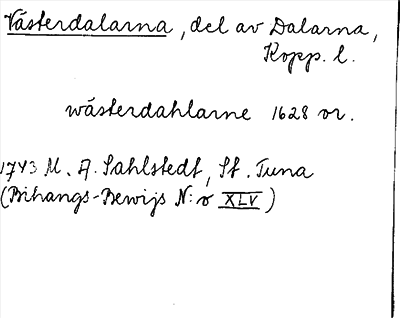 Västerdalarna, del av Dalarna,
Kopp. l.
wästerdahlarne 1628 or.
1743 M. A. Sahlstedt, St. Tuna
(Bihangs-Bewijs N:o XLV)